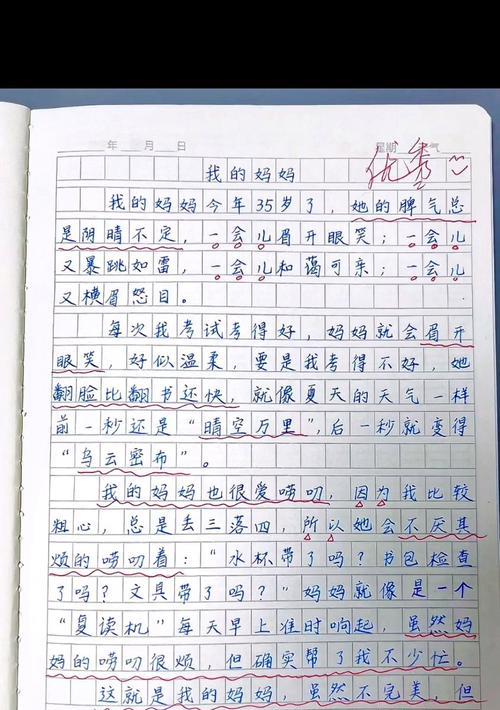 年 月 日 星期 气
优秀
我的妈妈
我的妈妈今年35岁了，她的脾气总
是阴晴不定，一会儿眉开眼笑；一会儿
又暴跳如雷，一会儿和蔼可亲；一会儿
又横眉怒目。
每次我考试考得好，妈妈就会眉开
眼笑，好似温柔，要是我考得不好，她
翻脸比翻书还快，就像夏天的天气一样
前一秒还是“晴空万里”，后一秒就变得
“乌云密布”。
我的妈妈也很爱唠叨，因为我比较
粗心，总是丢三落四，所以她会不厌其
烦的唠叨着：“水杯带了吗？书包检查
了吗？文具带了吗？”妈妈就像是一个
“复读机”每天早上准时响起，虽然妈
妈的唠叨很烦，但确实帮了我不少忙。
这就是我的妈妈，虽然不完美，但